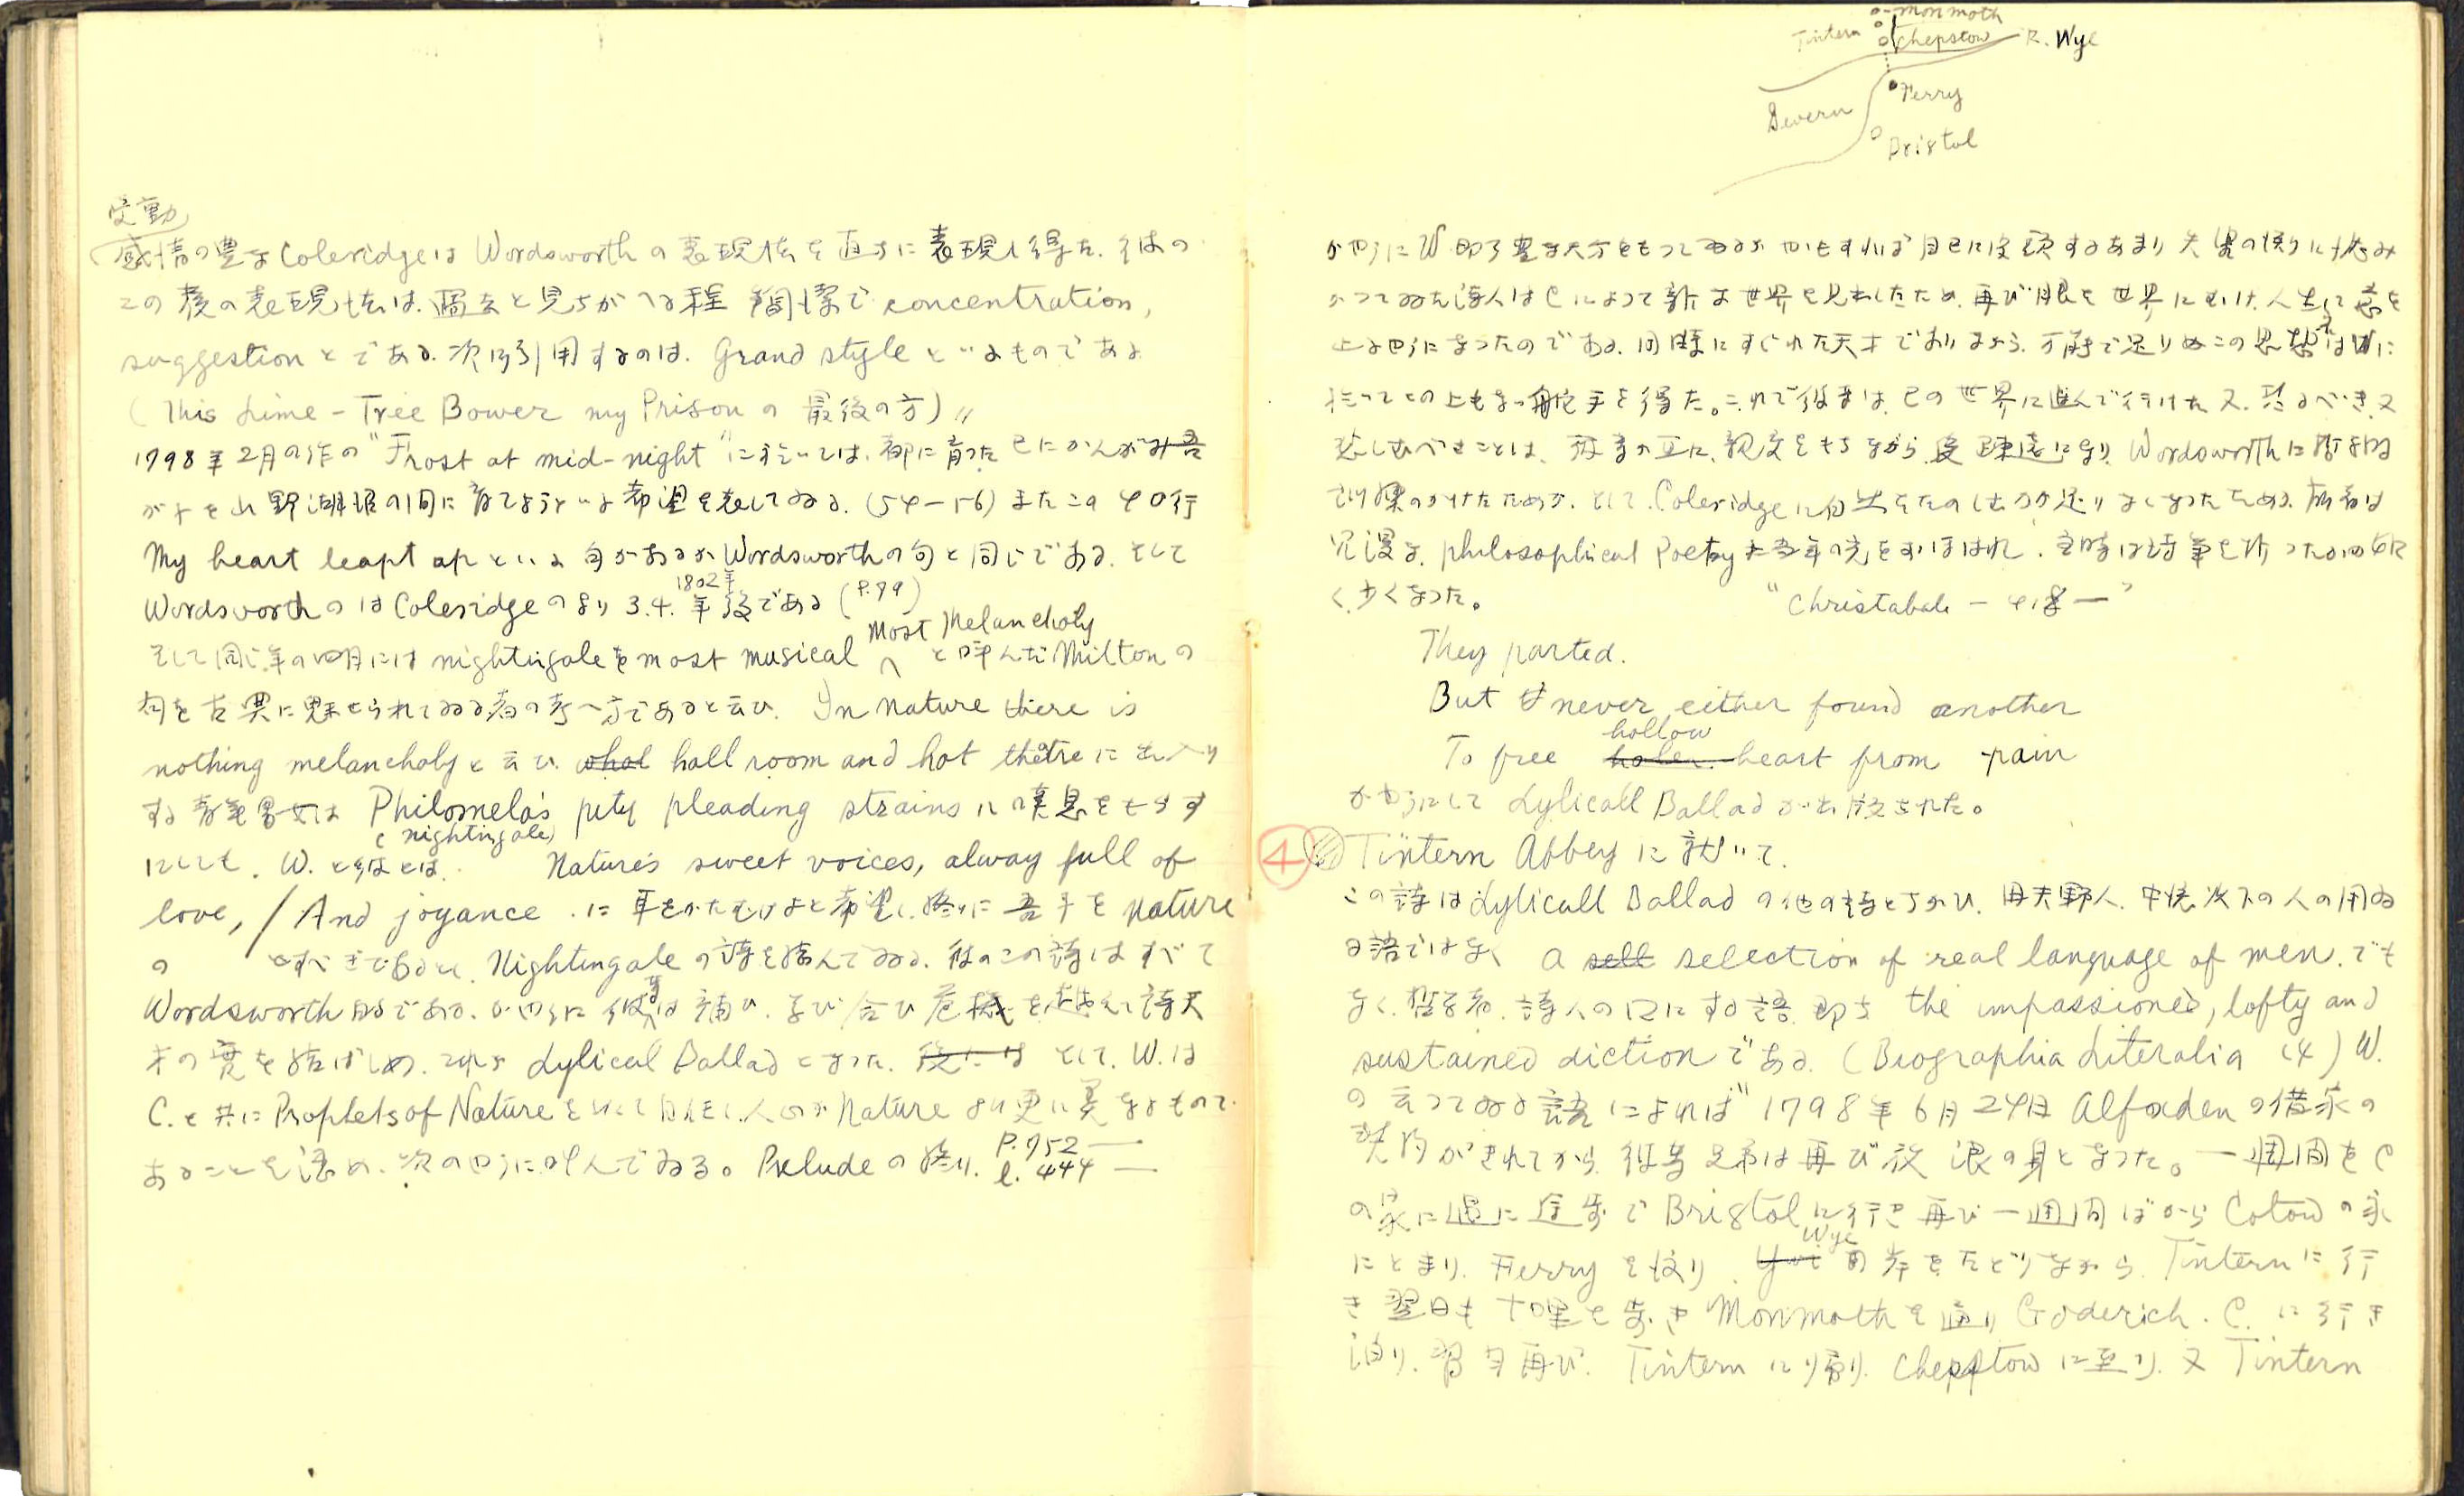 受動
感情の豊な Coleridge は Wordsworth の表現法を直ちに表現し得た. 彼の
この後の表現法は. 過去と見ちがへる程 簡潔で concentration,
suggestion とである. 次に引用するのは. Grand style といふものである
(This Lime-Tree Bower my Prison の最後の方) 〃
1798年2月の作の "Frost at mid-night" に於いては. 都に育った己にかんがみ吾
が子を山野湖水の間に育てようといふ希望を表してゐる. (54-56) またこの40行
My heart leapt up といふ句があるが Wordsworth の句と同じである. そして
1802年
Wordsworth のは Coleridge のより 3.4. 年後である (P.79)
most Melancholy
そして同じ年の四月には nightingale を most musical と呼んだ Milton の
句を古典に魅せられてゐる者の考へ方であると云ひ. In nature there is
nothing melancholy と云ひ. what ball room and hot theatre に出入り
する青年男女は Philomela's pity pleading strains に嘆息をもらす
(nightingale)
にしても. W. と彼とは. Nature's sweet voices, alway full of
love, / And joyance . に耳をかたむけよと希望し. 終りに吾子を nature
の とすべきであるとし. Nightingale の詩を結んでゐる. 彼のこの詩はすべて
Wordsworth 的である. かやうに彼等は補ひ. 学び合ひ 危機を越えて詩天
才の実を結ばしめ. それが Lylical Ballad となった. 後には そして. W. は
C. と共に Prophets of Nature を以って自任し. 人心が Nature より更に美なるもので
あることを認め. 次のやうに叫んでゐる。 Prelude の終り. P. 752 —
l. 444 —
Monmoth
Tintern Chepstow R. Wye
Ferry
Severn
Bristol
かやうに W 即ち豊な天分をもってゐるがややもすれば自己に没頭するあまり 失望の悟りに悩み
かつてゐた詩人は C によって新な世界を見出したため. 再び眼を世界にむけ. 人生に意を
止るやうになったのである. 同時にすぐれた天才でありながら. 万能で足りぬこの思想家は W に
於ってこの上もなき舵手を得た。これで彼等は. 己の世界に進んで行けた 又. 恐るべき. 又
悲しむべきことは. 両者が互に. 親交をもちながら 疎遠になり. Wordsworth に哲学的
訓練のかけたためか. そして. Coleridge に
冗漫な. philosophical Poetry に
く. 少くなった。 "Christabale — —"
They parted.
But never either found another
hollow
To free heart from pain
かやうにして Lylicall Ballad が出版された。
④ Tintern Abbey に就いて.
この詩は Lylicall Ballad の他の詩とちがひ. 田夫野人. 中流以下の人の用ゐ
る語ではなく a selt selection of real language of men. でも
なく. 哲学者. 詩人の口にする語. 即ち the impassioned, lofty and
sustained diction である. (Biographia Literalia 14) W.
の云ってゐる語によれば "1798年6月24日 Alfoxden の借家の
契約がきれてから. 彼等兄弟は再び放浪の身となった。一週間を C
の家に過し 徒歩で Bristol に行き 再び一週間ばかり Cotow の家
Wye
にとまり. Ferry を渡り. の岸をたどりながら. Tintern に行
き 翌日も十哩を歩き Monmoth を通り Goderich. C. に行き
泊り. 翌日再び. Tintern に帰り. Chepstow に至り. 又 Tintern